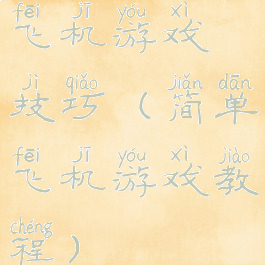 fēi jī yóu xì
飞机游戏
jì qiǎo jiǎn dān
技巧（简单
fēi jī yóu xì jiào
飞机游戏教
chéng
程）